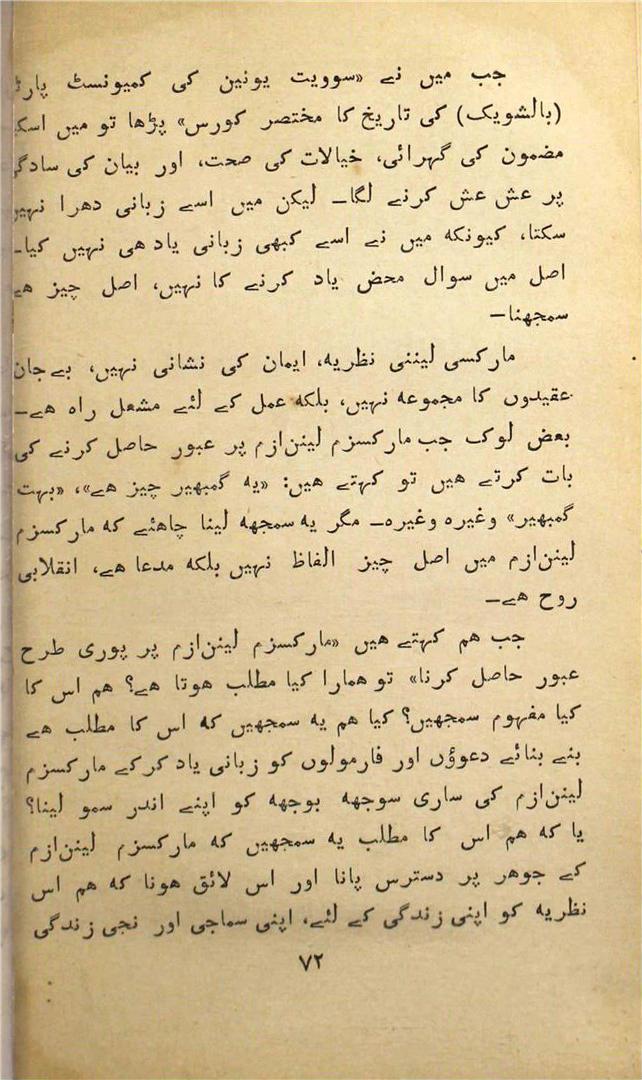 جب میں نے «سوویت یونین کی کمیونسٹ پارٹ
(بالشویک) کی تاریخ کا مختصر کورس» پڑھا تو میں اسک
مضمون کی گہرائی، خیالات کی صحت، اور بیان کی سادگ
پر عش عش کرنے لگا۔ لیکن میں اسے زبانی دھرا نہیں
سکتا، کیونکہ میں نے اسے کبھی زبانی یاد ھی نہیں کیا۔
اصل میں سوال محض یاد کرنے کا نہیں، اصل چیز ھے
سمجھنا۔
مارکسی لیننی نظریہ، ایمان کی نشانی نہیں، بےجان
عقیدوں کا مجموعہ نہیں، بلکہ عمل کے لئے مشعل راہ ھے۔
بعض لوگ جب مارکسزم لینن‌ازم پر عبور حاصل کرنے کی
بات کرتے ھیں تو کہتے ھیں: «یہ گمبھیر چیز ھے»، «بہت
گمبھیر» وغیرہ وغیرہ۔ مگر یہ سمجھ لینا چاھئے کہ مارکسزم
لینن‌ازم میں اصل چیز الفاظ نہیں بلکہ مدعا ھے، انقلابی
روح ھے۔
جب ھم کہتے ھیں «مارکسزم لینن‌ازم پر پوری طرح
عبور حاصل کرنا» تو ھمارا کیا مطلب ھوتا ھے؟ ھم اس کا
کیا مفہوم سمجھیں؟ کیا ھم یہ سمجھیں کہ اس کا مطلب ھے
بنے بنائے دعوؤں اور فارمولوں کو زبانی یاد کرکے مارکسزم
لینن‌ازم کی ساری سوجھ بوجھ کو اپنے اندر سمو لینا؟
یا کہ ھم اس کا مطلب یہ سمجھیں کہ مارکسزم لینن‌ازم
کے جوھر پر دسترس پانا اور اس لائق ھونا کہ ھم اس
نظریہ کو اپنی زندگی کے لئے، اپنی سماجی اور نجی زندگی
۷۲